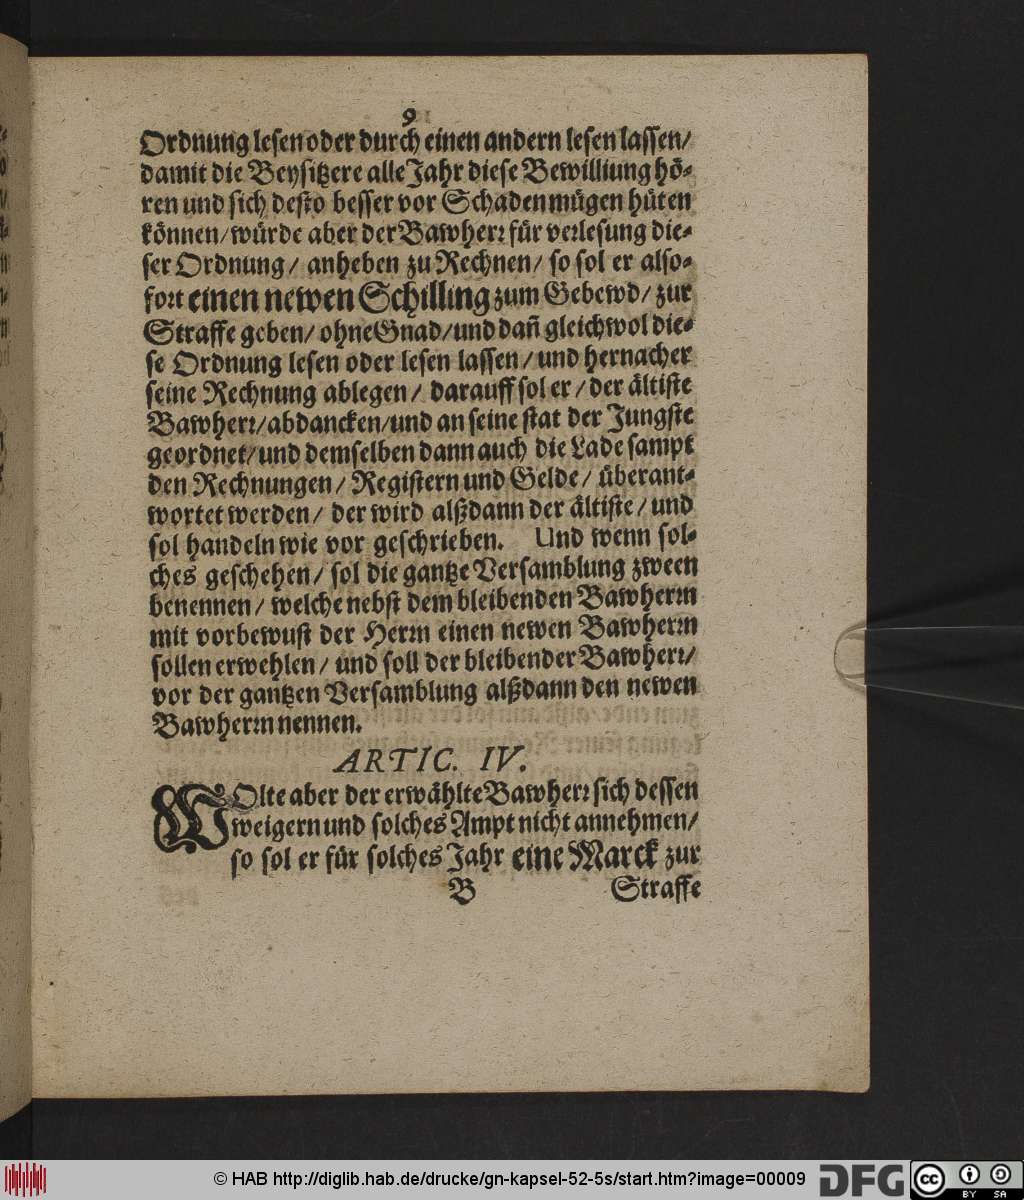 9
Ordnung lesen oder durch einen andern lesen lassen/
damit die Beysitzere alle Jahr diese Bewilliung hö-
ren und sich desto besser vor Schaden mügen hüten
können/ würde aber der Bawherr für verlesung die-
ser Ordnung/ anheben zu Rechnen/ so sol er also-
fort einen newen Schilling zum Gebewd/ zur
Straffe geben/ ohne Gnad/ und dañ gleichwol die-
se Ordnung lesen oder lesen lassen/ und hernacher
seine Rechnung ablegen/ darauff sol er/ der ältiste
Bawherr/ abdancken/ und an seine stat der Jungste
geordnet/ und demselben dann auch die Lade sampt
den Rechnungen/ Registern und Gelde/ überant-
wortet werden/ der wird alßdann der ältiste/ und
sol handeln wie vor geschrieben. Und wenn sol-
ches geschehen/ sol die gantze Versamblung zween
benennen/ welche nebst dem bleibenden Bawherrn
mit vorbewust der Herrn einen newen Bawherrn
sollen erwehlen/ und soll der bleibender Bawherr/
vor der gantzen Versamblung alßdann den newen
Bawherrn nennen.
ARTIC. IV.
WOlte aber der erwählte Bawherr sich dessen
weigern und solches Ampt nicht annehmen/
so sol er für solches Jahr eine Marck zur
B Straffe
© HAB http://diglib.hab.de/drucke/gn-kapsel-52-5s/start.htm?image=00009 DFG CC BY SA